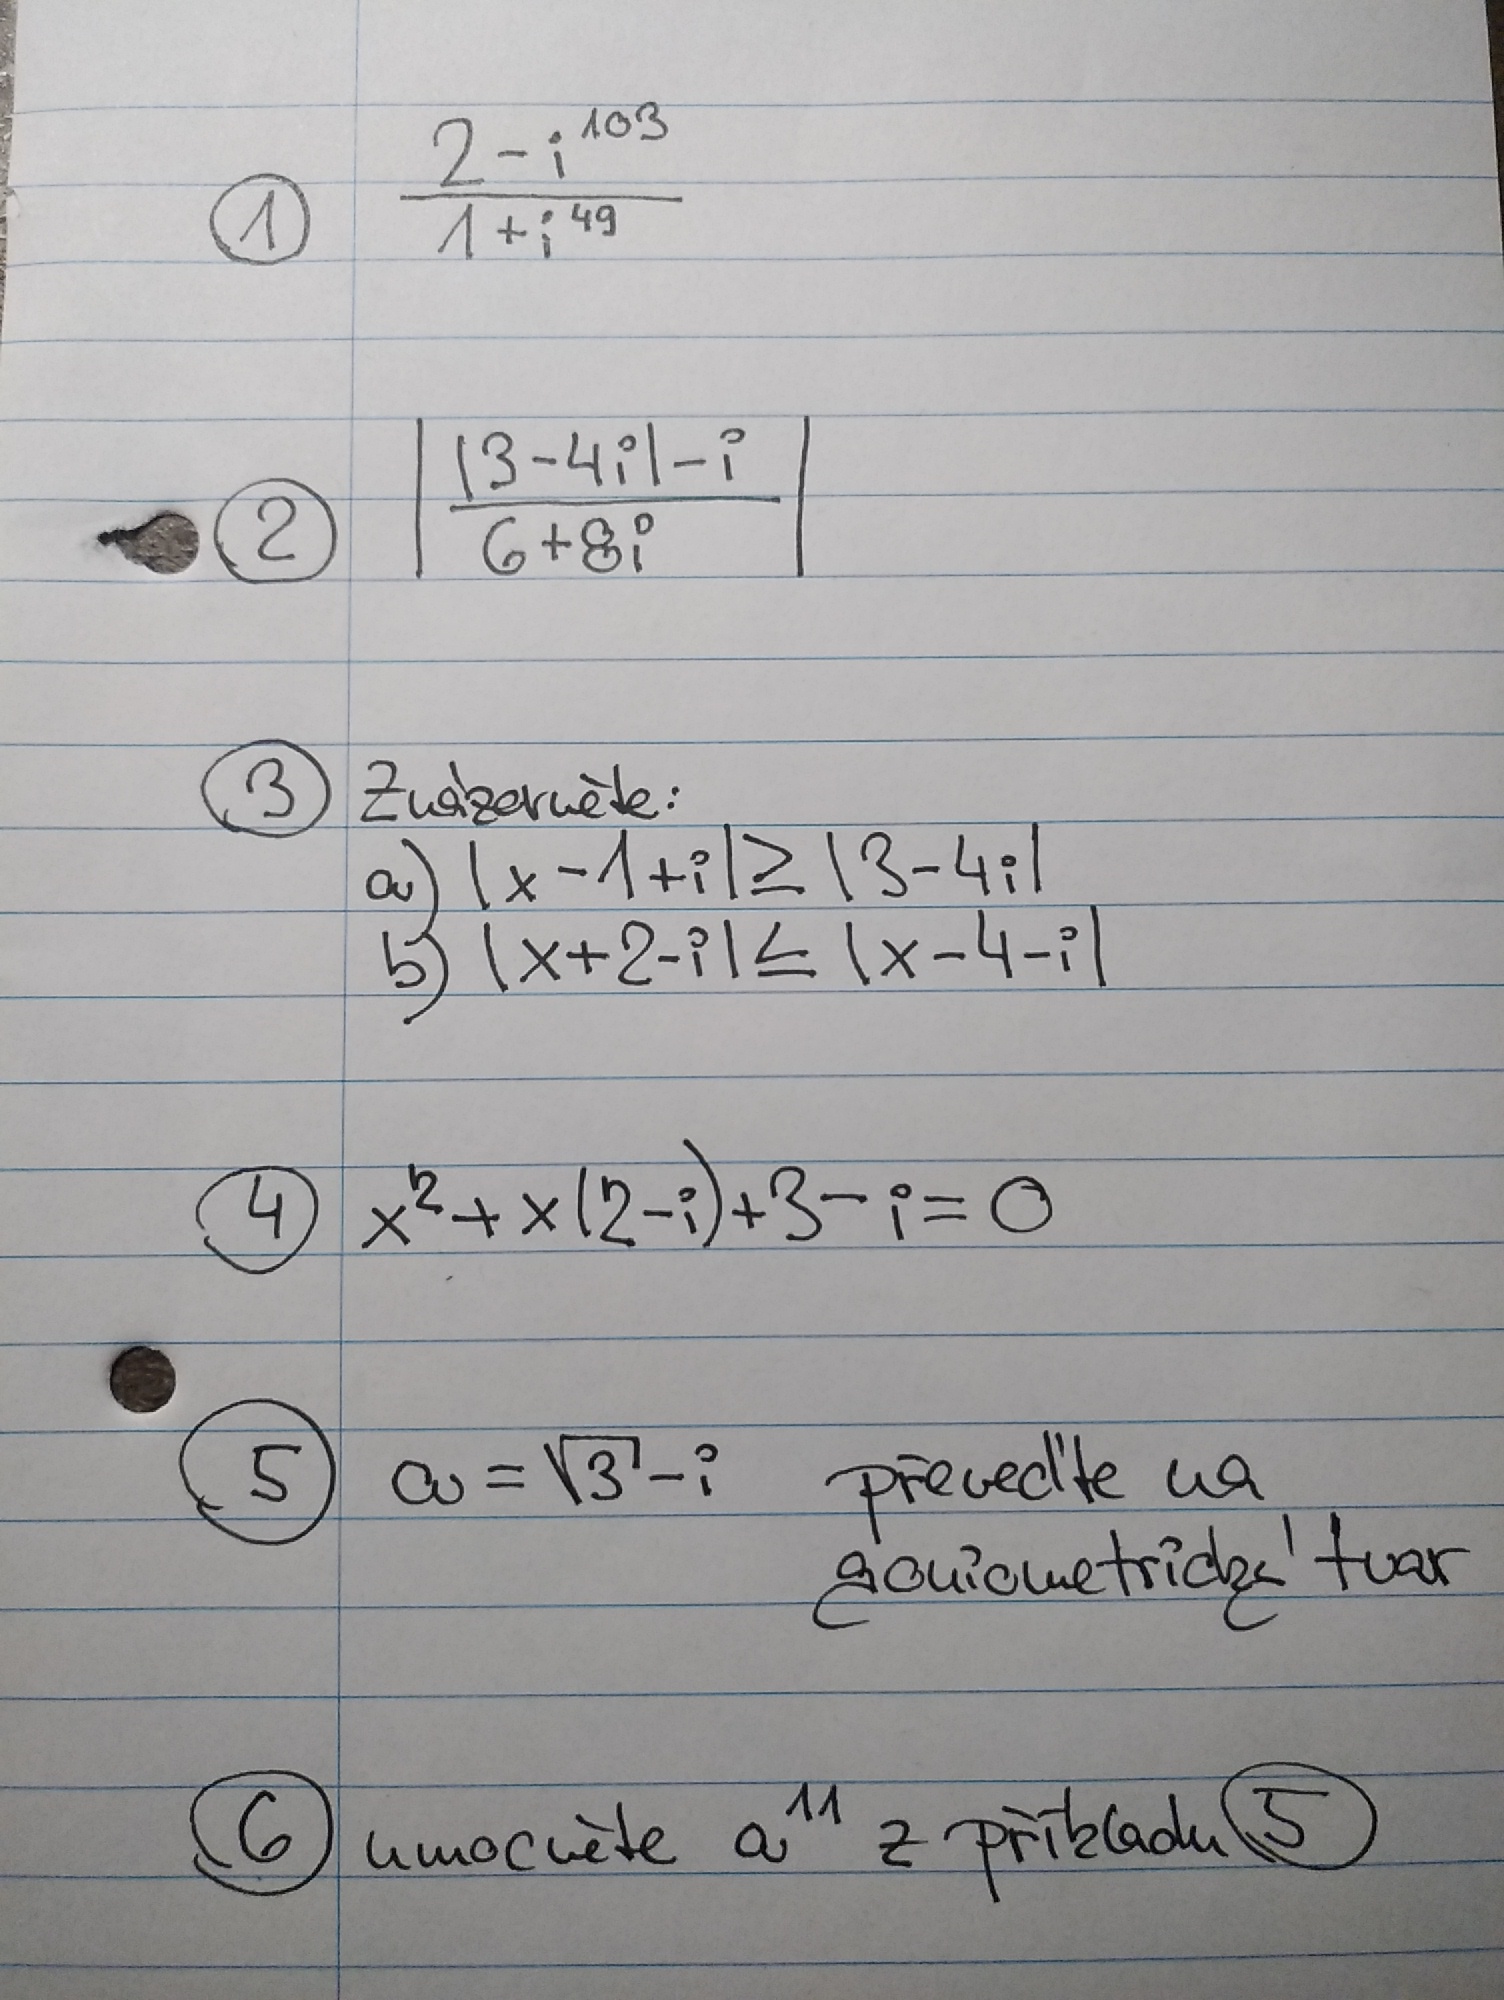 1 (2-i^103)/(1+i^49)
2 | (|3-4i|-i)/(6+8i) |
3 Znázorněte:
a) |x-1+i| ≥ |3-4i|
b) |x+2-i| ≤ |x-4-i|
4 x² + x(2-i)+3-i=0
5 a = √3 - i převeďte na
goniometrický tvar
6 umocněte a^11 z příkladu 5